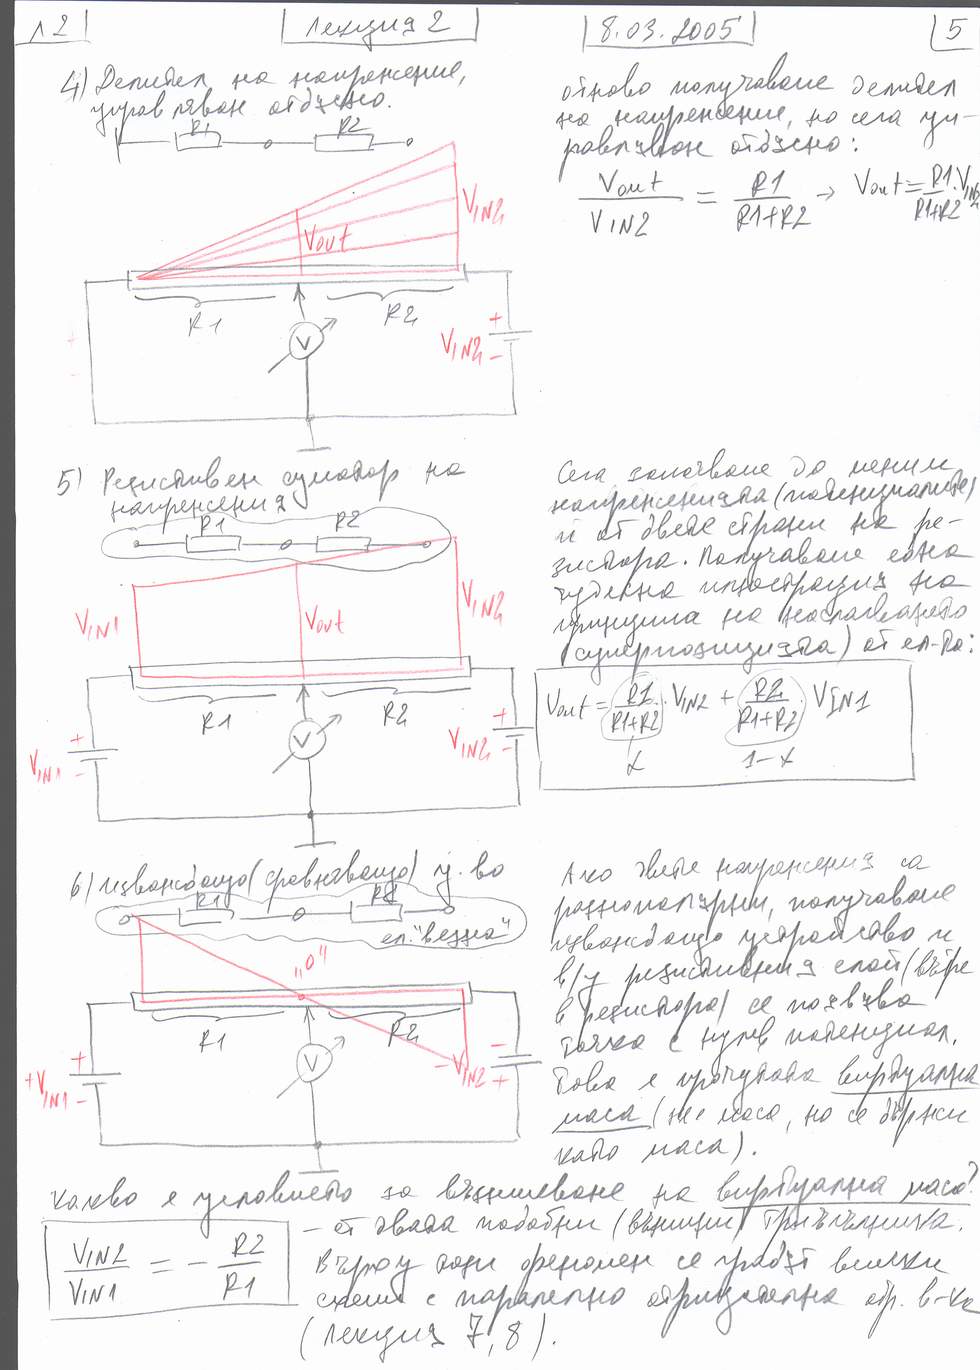 Л2
Лекция 2
8.03.2005
5
4) Делител на напрежение,
управляван отдясно.
R1
R2
VIN2
Vout
R1
R2
V
VIN2
+
-
отново получаваме делител
на напрежение, но сега уп-
равляван отдясно:
Vout / VIN2 = R1 / (R1+R2) → Vout = R1 / (R1+R2) . VIN2
5) Резистивен суматор на
напрежения
R1
R2
VIN1
Vout
VIN2
R1
R2
V
VIN1
+
-
VIN2
+
-
Сега започваме да меним
напреженията (потенциалите)
и от двете страни на ре-
зистора. Получаваме една
чудесна илюстрация на
принципа на наслагването
(суперпозицията) от ел-ка:
Vout = R1 / (R1+R2) . VIN2 + R2 / (R1+R2) . VIN1
α
1-α
6) Изваждащо (сравняващо) у-во
R1
R2
ел. "везна"
"0"
R1
R2
V
+VIN1
+
-
-VIN2
-
+
Ако двете напрежения са
разнополярни, получаваме
изваждащо устройство и
в/у резистивния слой (вътре
в резистора) се появява
точка с нулев потенциал.
Това е прочутата виртуална
маса (не маса, но се държи
като маса).
Какво е условието за възникване на виртуална маса?
VIN2 / VIN1 = - R2 / R1
- от двата подобни триъгълника.
Върху този феномен се градят всички
схеми с паралелна отрицателна обр. в-ка
(Лекция 7, 8).